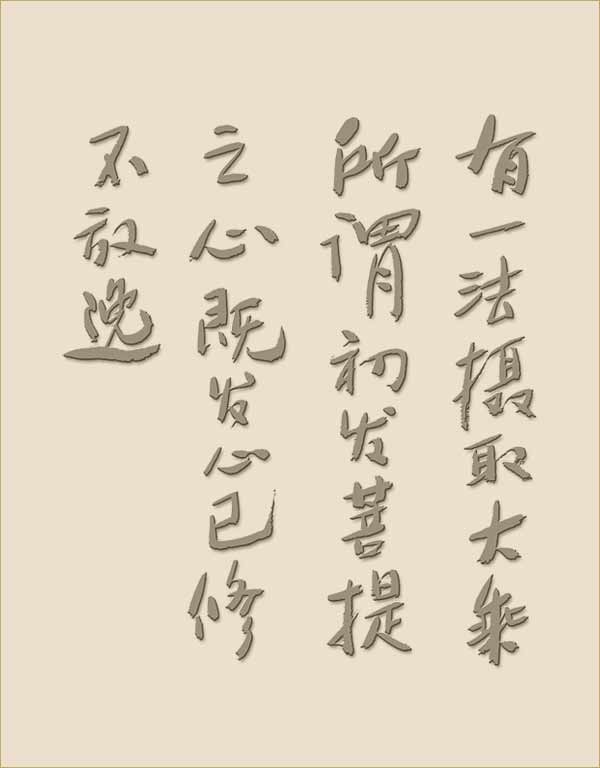 有一法摄取大乘
所谓初发菩提
之心既发心已修
不放逸